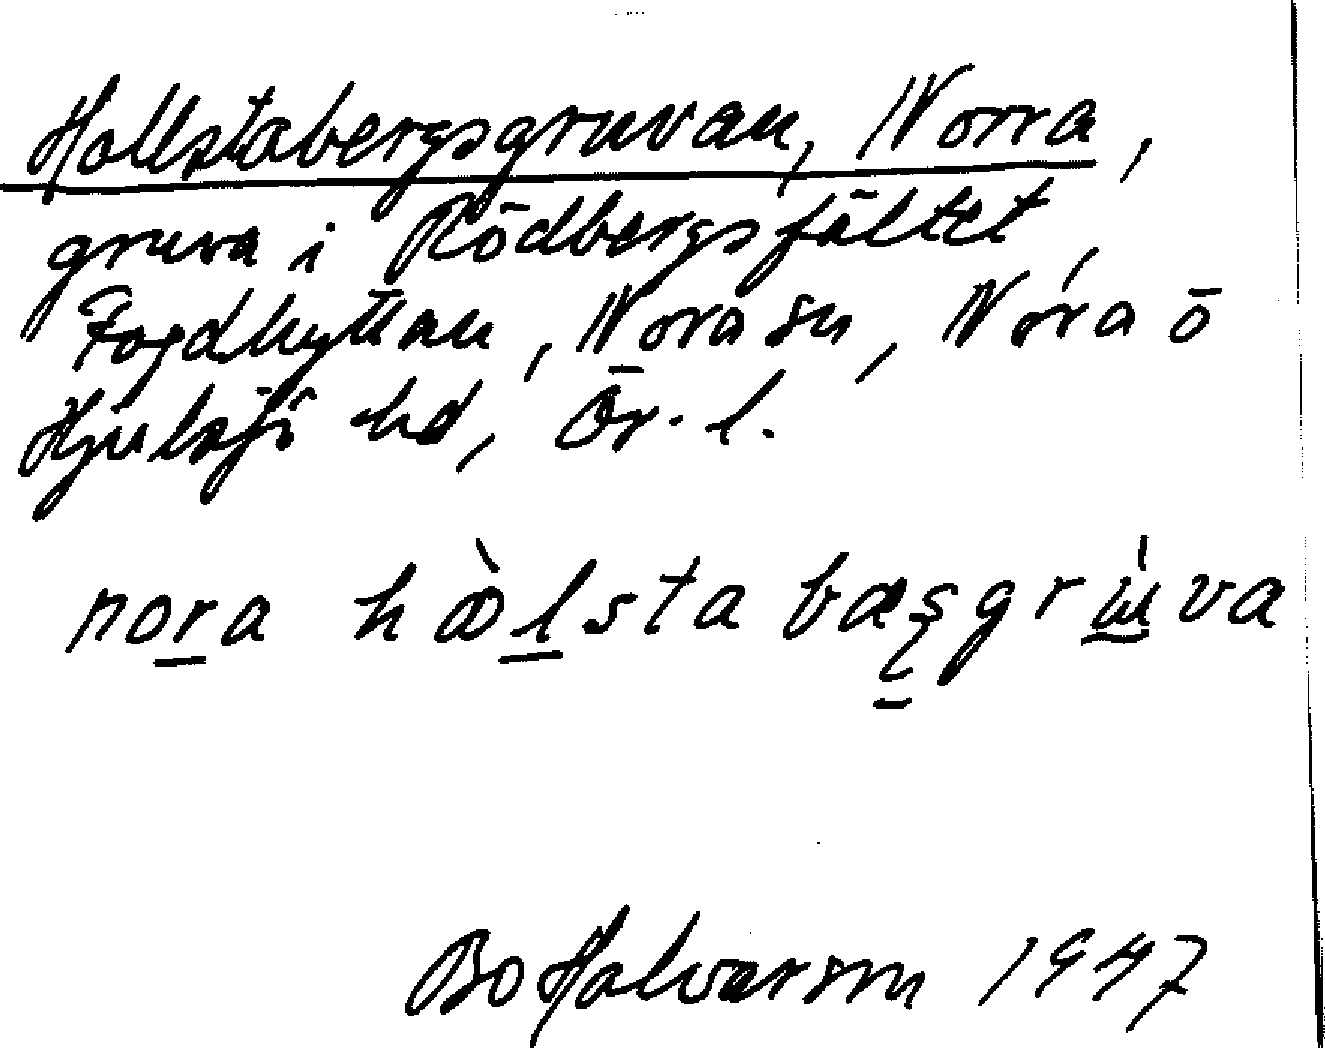 Hallstabergsgruvan, Norra,
gruva i Rödbergsfältet,
Fogdhyttan, Nora sn, Nora o
Hjulsjö hd, Ör. l.
nora hòlsta bæʂgrɯ́va
Bo Halvarson 1947